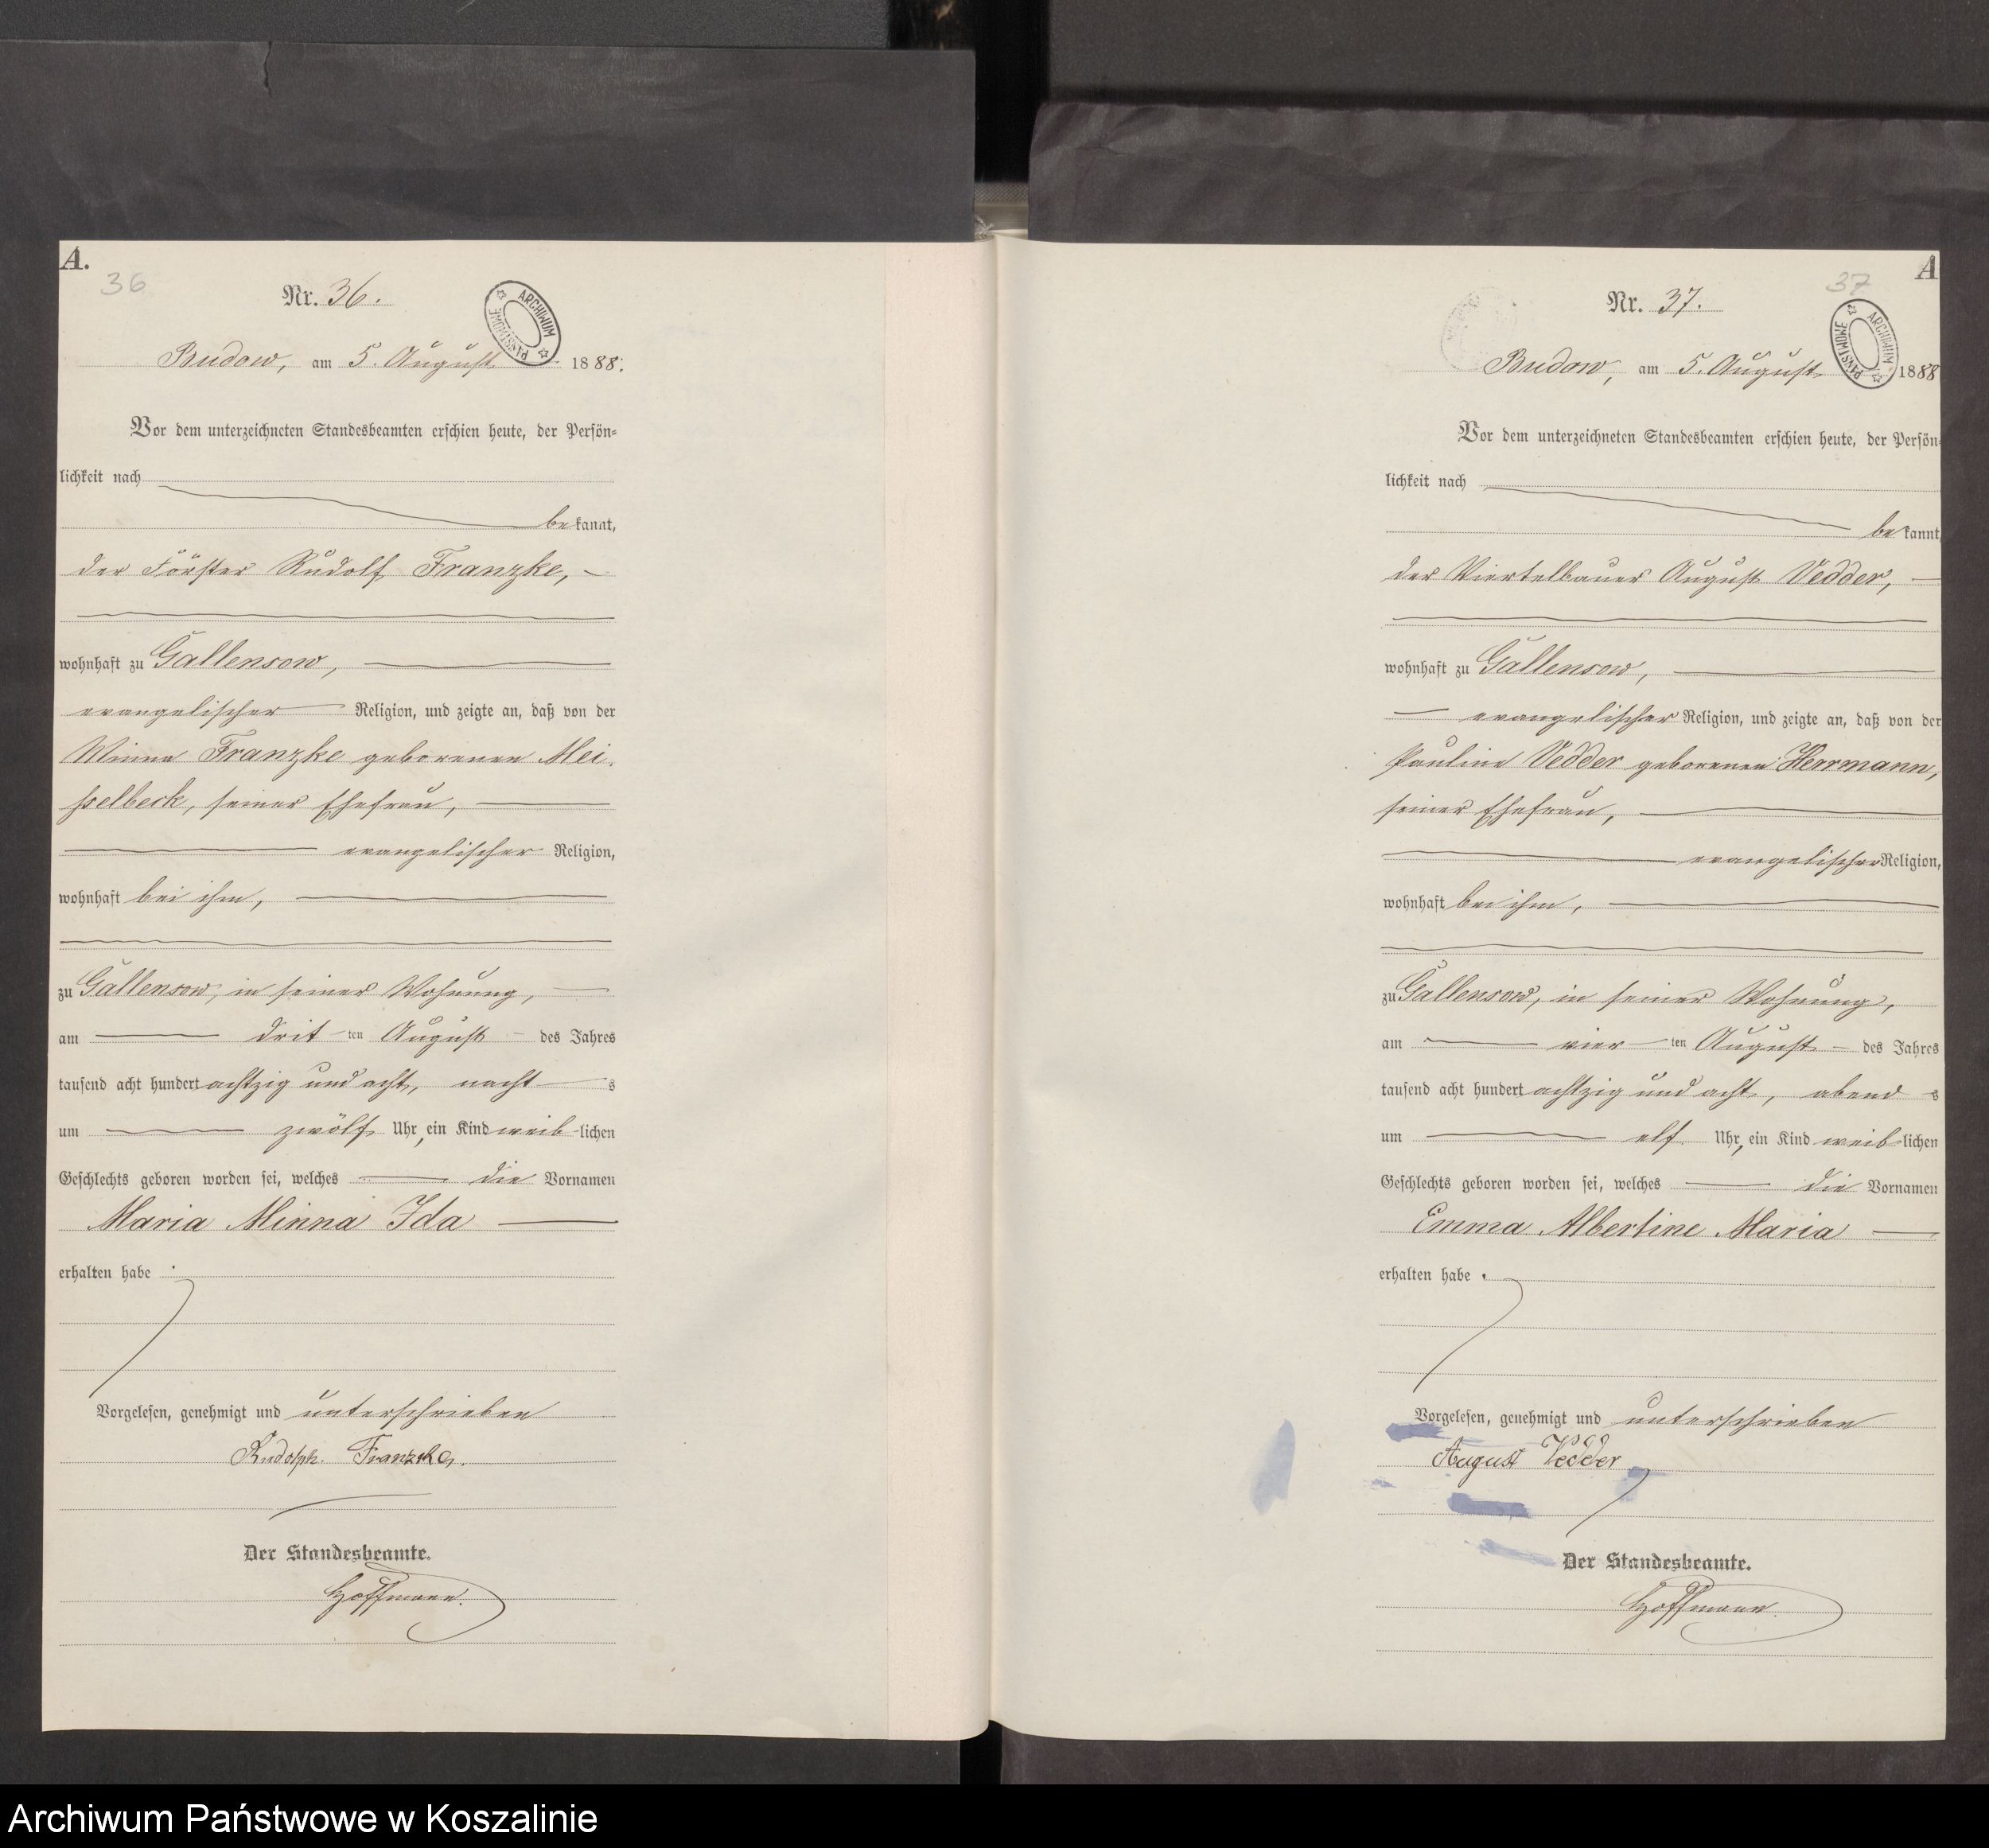 A.
36
Nr. 36.
ARCHIWUM PAŃSTWOWE
Budow, am 5. August 1888.
Vor dem unterzeichneten Standesbeamten erschien heute, der Persön-
lichkeit nach
bekannt,
der Förster Rudolf Franzke,
wohnhaft zu Gallensow,
evangelischer Religion, und zeigte an, daß von der
Minna Franzke geborenen Mei-
sselbeck, seiner Ehefrau,
evangelischer Religion,
wohnhaft bei ihm,
zu Gallensow, in seiner Wohnung,
am dritten August des Jahres
tausend acht hundert achtzig und acht, nachts
um zwölf Uhr, ein Kind weiblichen
Geschlechts geboren worden sei, welches die Vornamen
Maria Minna Ida
erhalten habe.
Vorgelesen, genehmigt und unterschrieben
Rudolph. Franzke.
Der Standesbeamte.
Hoffmann.
A
37
Nr. 37.
ARCHIWUM PAŃSTWOWE
Budow, am 5. August 1888
Vor dem unterzeichneten Standesbeamten erschien heute, der Persön-
lichkeit nach
bekannt
der Viertelbauer August Vedder,
wohnhaft zu Gallensow,
evangelischer Religion, und zeigte an, daß von der
Pauline Vedder geborenen Herrmann,
seiner Ehefrau,
evangelischer Religion,
wohnhaft bei ihm,
zu Gallensow, in seiner Wohnung,
am vierten August des Jahres
tausend acht hundert achtzig und acht, abends
um elf Uhr, ein Kind weiblichen
Geschlechts geboren worden sei, welches die Vornamen
Emma Albertine Maria
erhalten habe.
Vorgelesen, genehmigt und unterschrieben
August Vedder
Der Standesbeamte.
Hoffmann.
Archiwum Państwowe w Koszalinie